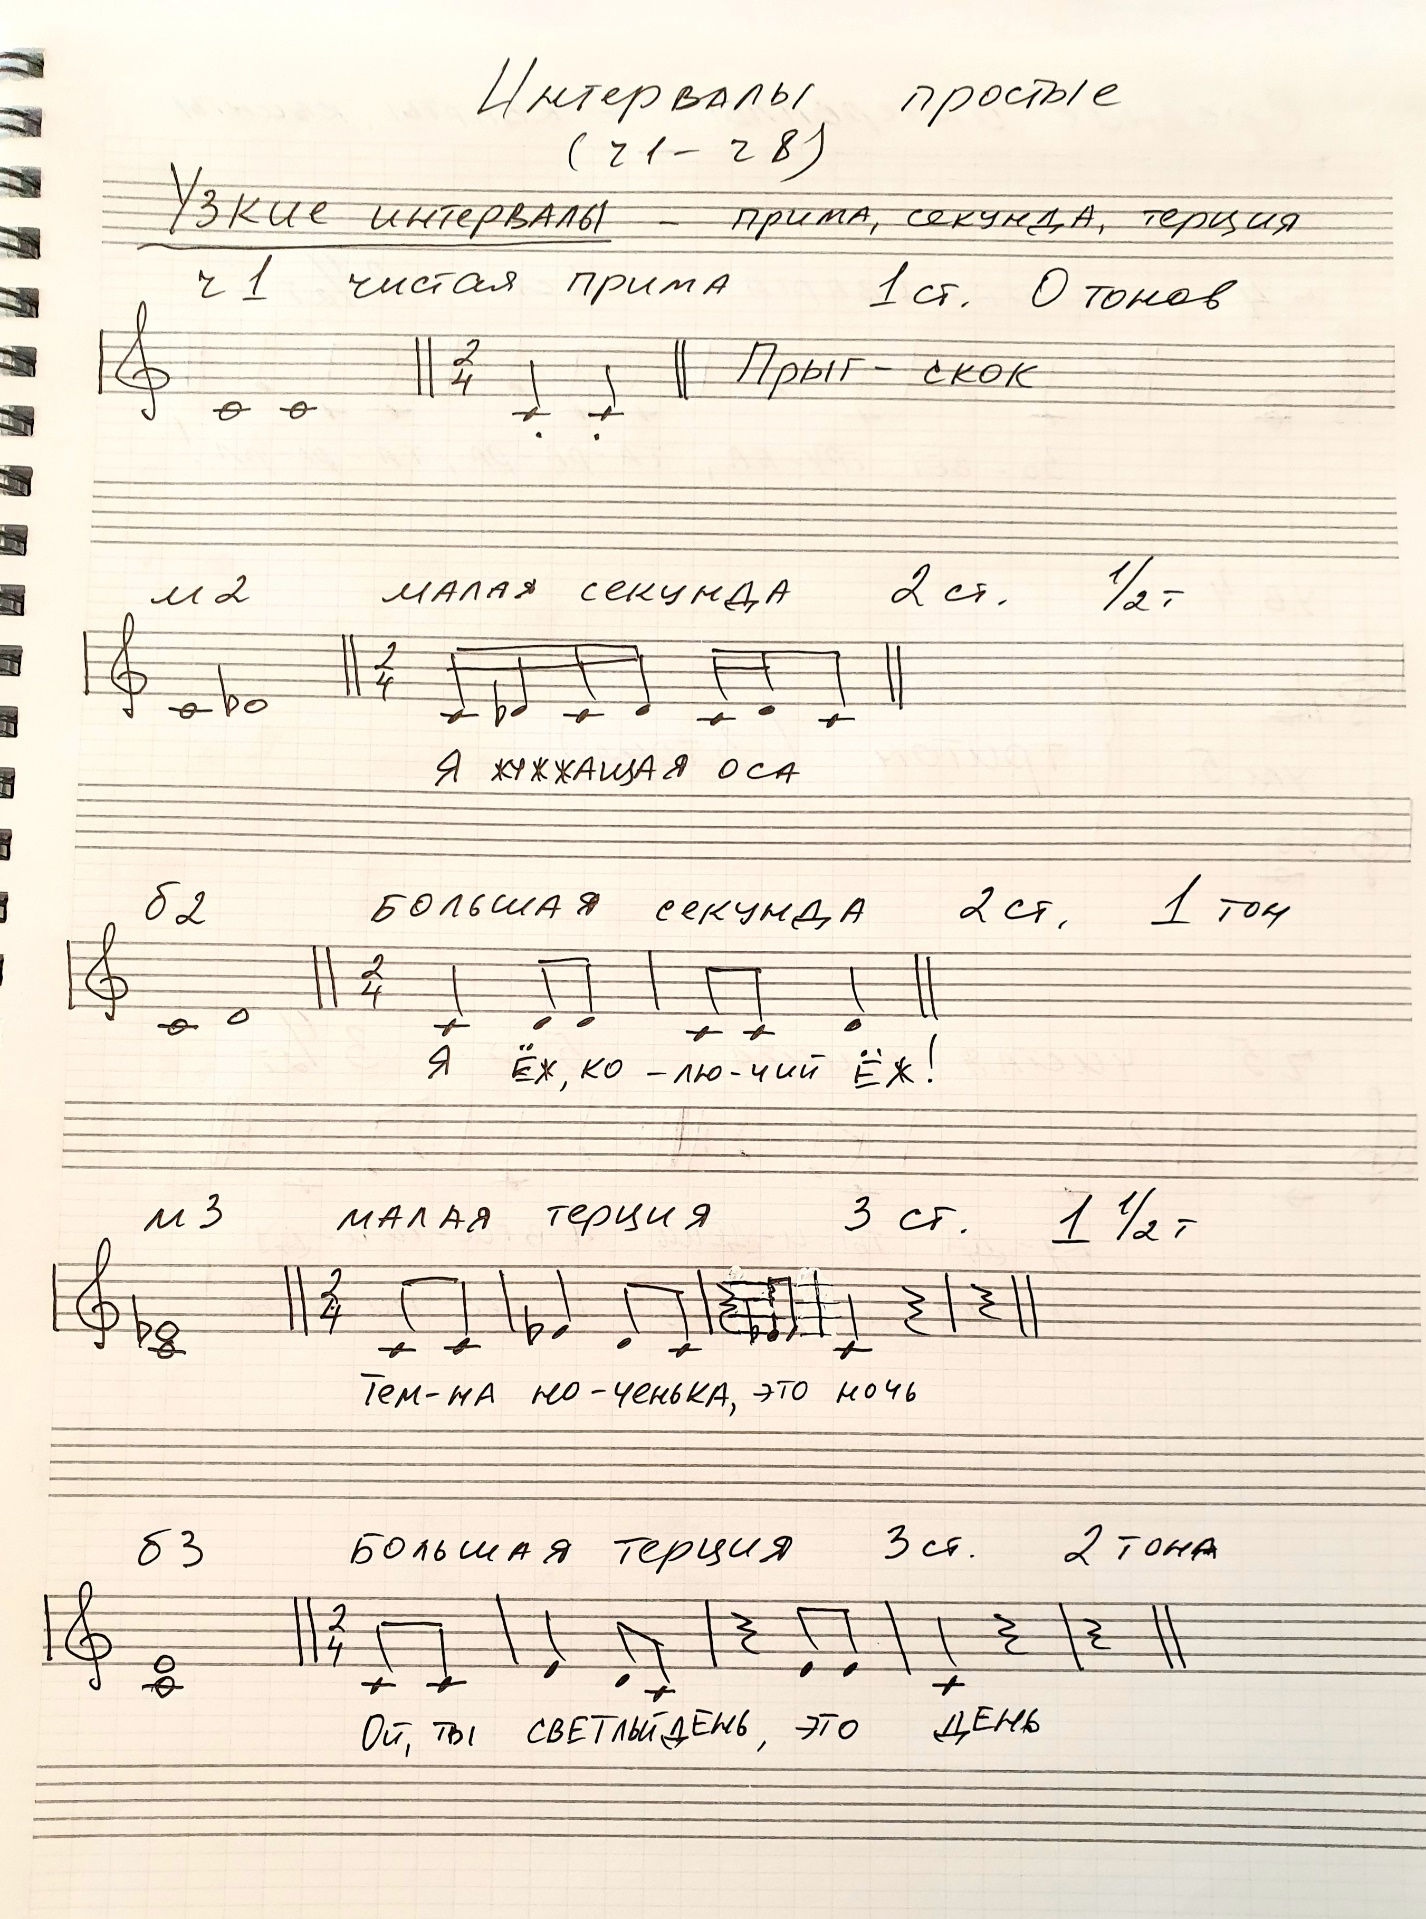 Интервалы простые
(ч1 - ч8)
Узкие интервалы - прима, секунда, терция
ч1 чистая прима 1 ст. 0 тонов
2/4 Прыг - скок
м2 малая секунда 2 ст. 1/2 т
2/4
Я жужжащая оса
б2 большая секунда 2 ст. 1 тон
2/4
Я Ёж, ко - лю - чий Ёж!
м3 малая терция 3 ст. 1 1/2 т
2/4
Тем - на но - ченька, это ночь
б3 большая терция 3 ст. 2 тона
2/4
Ой, ты светлый день, это день